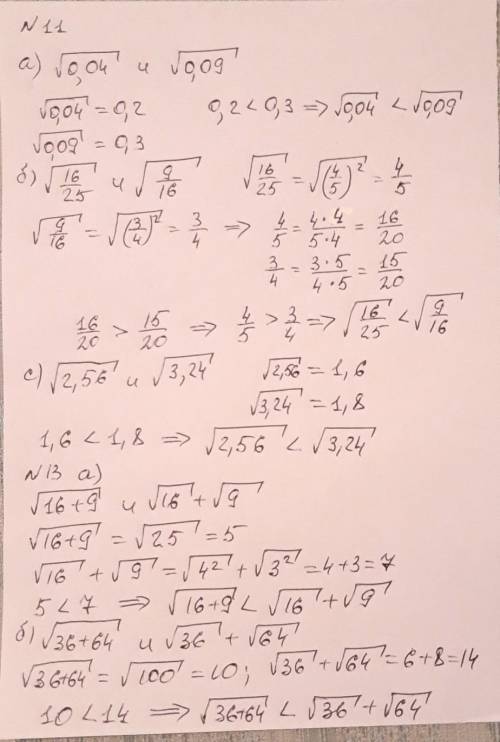 N 11
а) √0,04 и √0,09
√0,04 = 0,2 0,2 < 0,3 ⇒ √0,04 < √0,09
√0,09 = 0,3
б) √(16/25) и √(9/16) √(16/25) = √((4/5)²) = 4/5
√(9/16) = √((3/4)²) = 3/4 ⇒ 4/5 = (4·4)/(5·4) = 16/20
3/4 = (3·5)/(4·5) = 15/20
16/20 > 15/20 ⇒ 4/5 > 3/4 ⇒ √(16/25) < √(9/16)
с) √2,56 и √3,24 √2,56 = 1,6
√3,24 = 1,8
1,6 < 1,8 ⇒ √2,56 < √3,24
N 13 а)
√(16+9) и √16 + √9
√(16+9) = √25 = 5
√16 + √9 = √(4²) + √(3²) = 4+3 = 7
5 < 7 ⇒ √(16+9) < √16 + √9
б) √(36+64) и √36 + √64
√(36+64) = √100 = 10; √36 + √64 = 6+8 = 14
10 < 14 ⇒ √(36+64) < √36 + √64